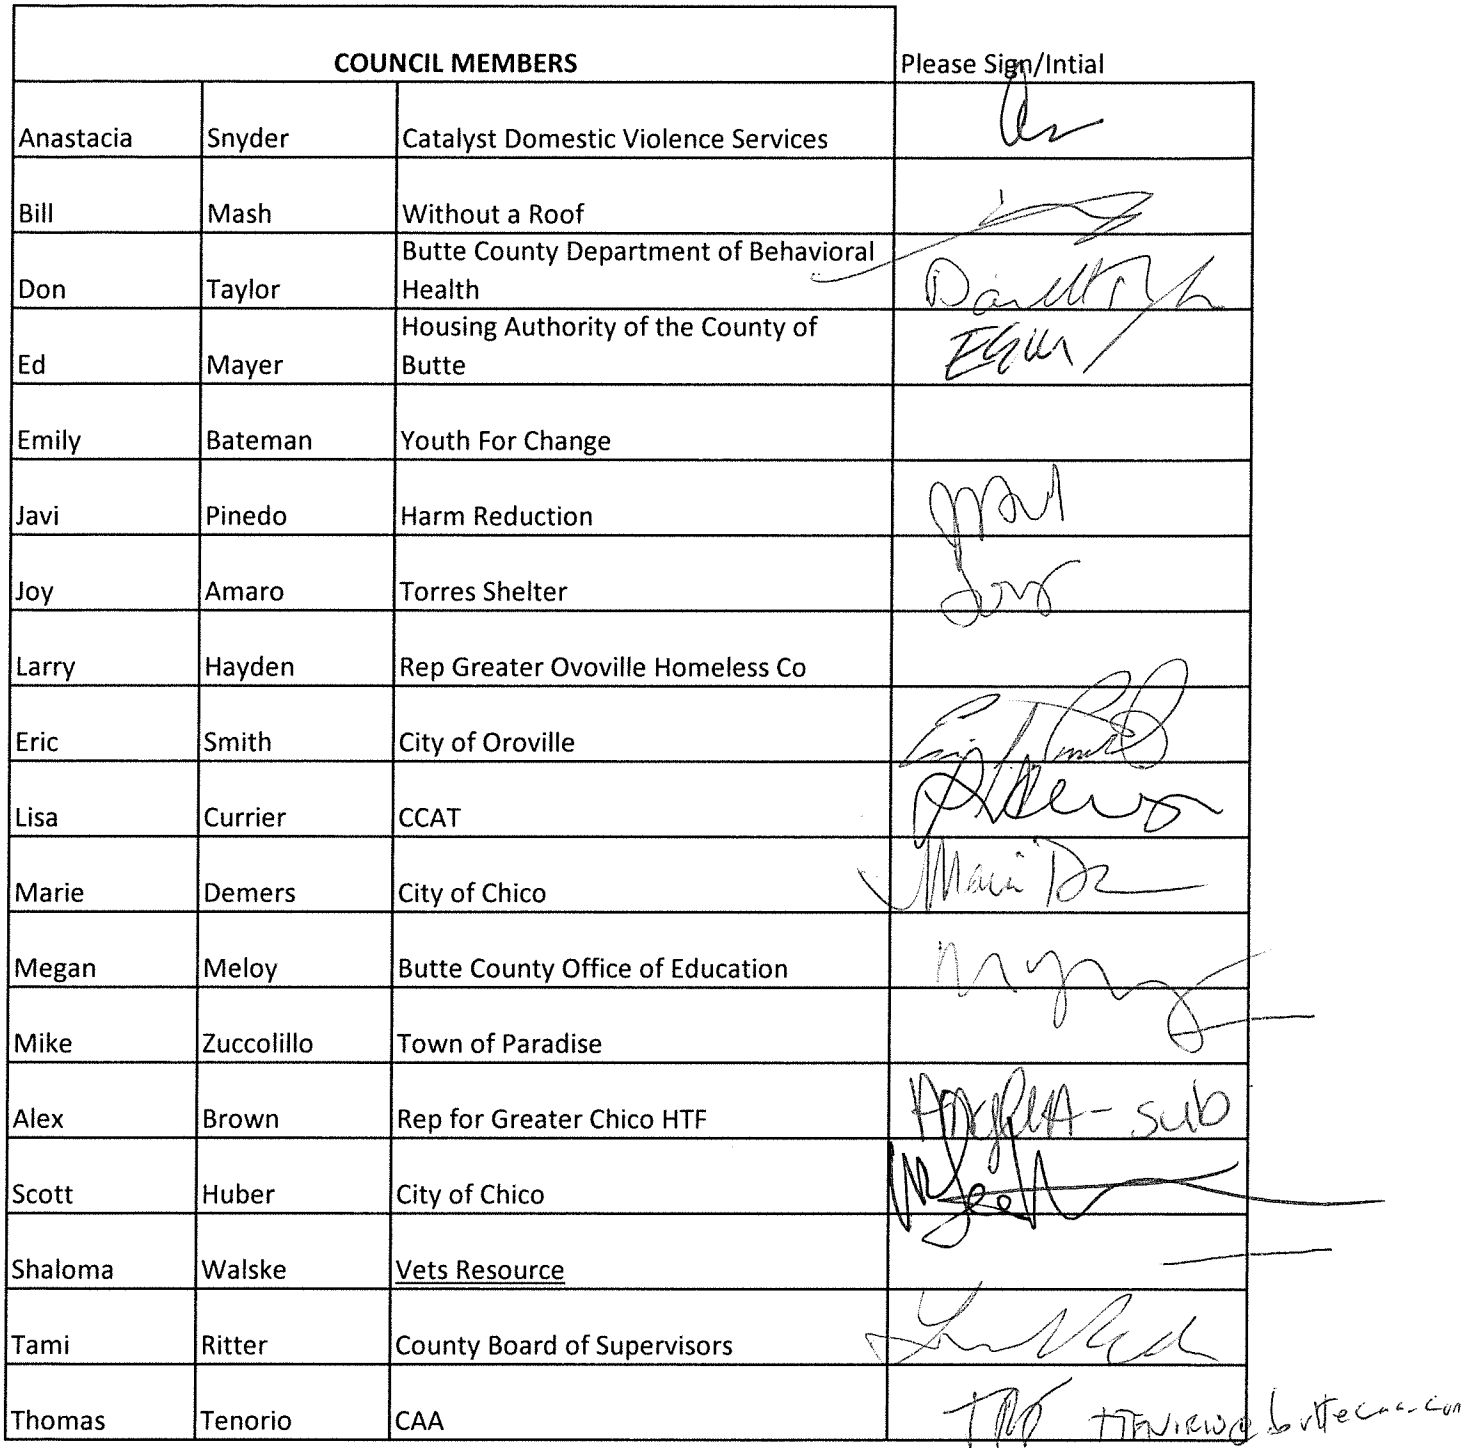 COUNCIL MEMBERS Please Sign/Intial
Anastacia Snyder Catalyst Domestic Violence Services
Bill Mash Without a Roof
Don Taylor Butte County Department of Behavioral
Health
Ed Mayer Housing Authority of the County of
Butte
Emily Bateman Youth For Change
Javi Pinedo Harm Reduction
Joy Amaro Torres Shelter
Larry Hayden Rep Greater Ovoville Homeless Co
Eric Smith City of Oroville
Lisa Currier CCAT
Marie Demers City of Chico
Megan Meloy Butte County Office of Education
Mike Zuccolillo Town of Paradise
Alex Brown Rep for Greater Chico HTF Angela - sub
Scott Huber City of Chico
Shaloma Walske Vets Resource
Tami Ritter County Board of Supervisors
Thomas Tenorio CAA